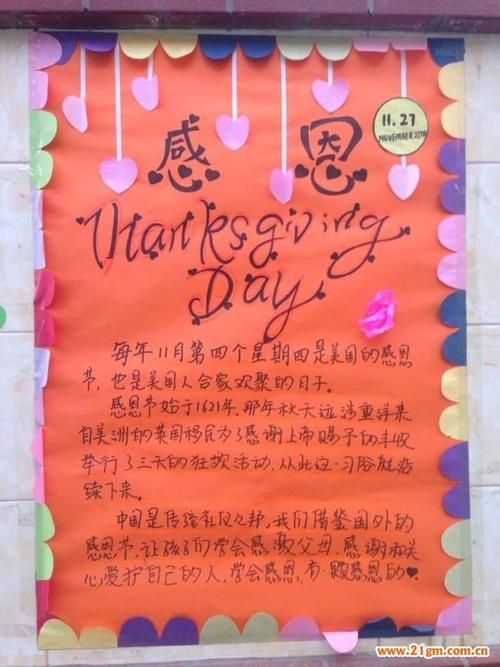 11.27
NOVEMBER 27TH
感恩
Thanksgiving
Day
每年11月第四个星期四是美国的感恩
节,也是美国人合家欢聚的日子。
感恩节始于1621年,那年秋天远涉重洋来
自美洲的英国移民为了感谢上帝赐予的丰收
举行了三天的狂欢活动,从此这一习俗就沿
续下来。
中国是传统礼仪之邦,我们借鉴国外的
感恩节,让孩子们学会感激父母,感谢和关
心爱护自己的人,学会感恩,有一颗感恩的
www.21gm.com.cn